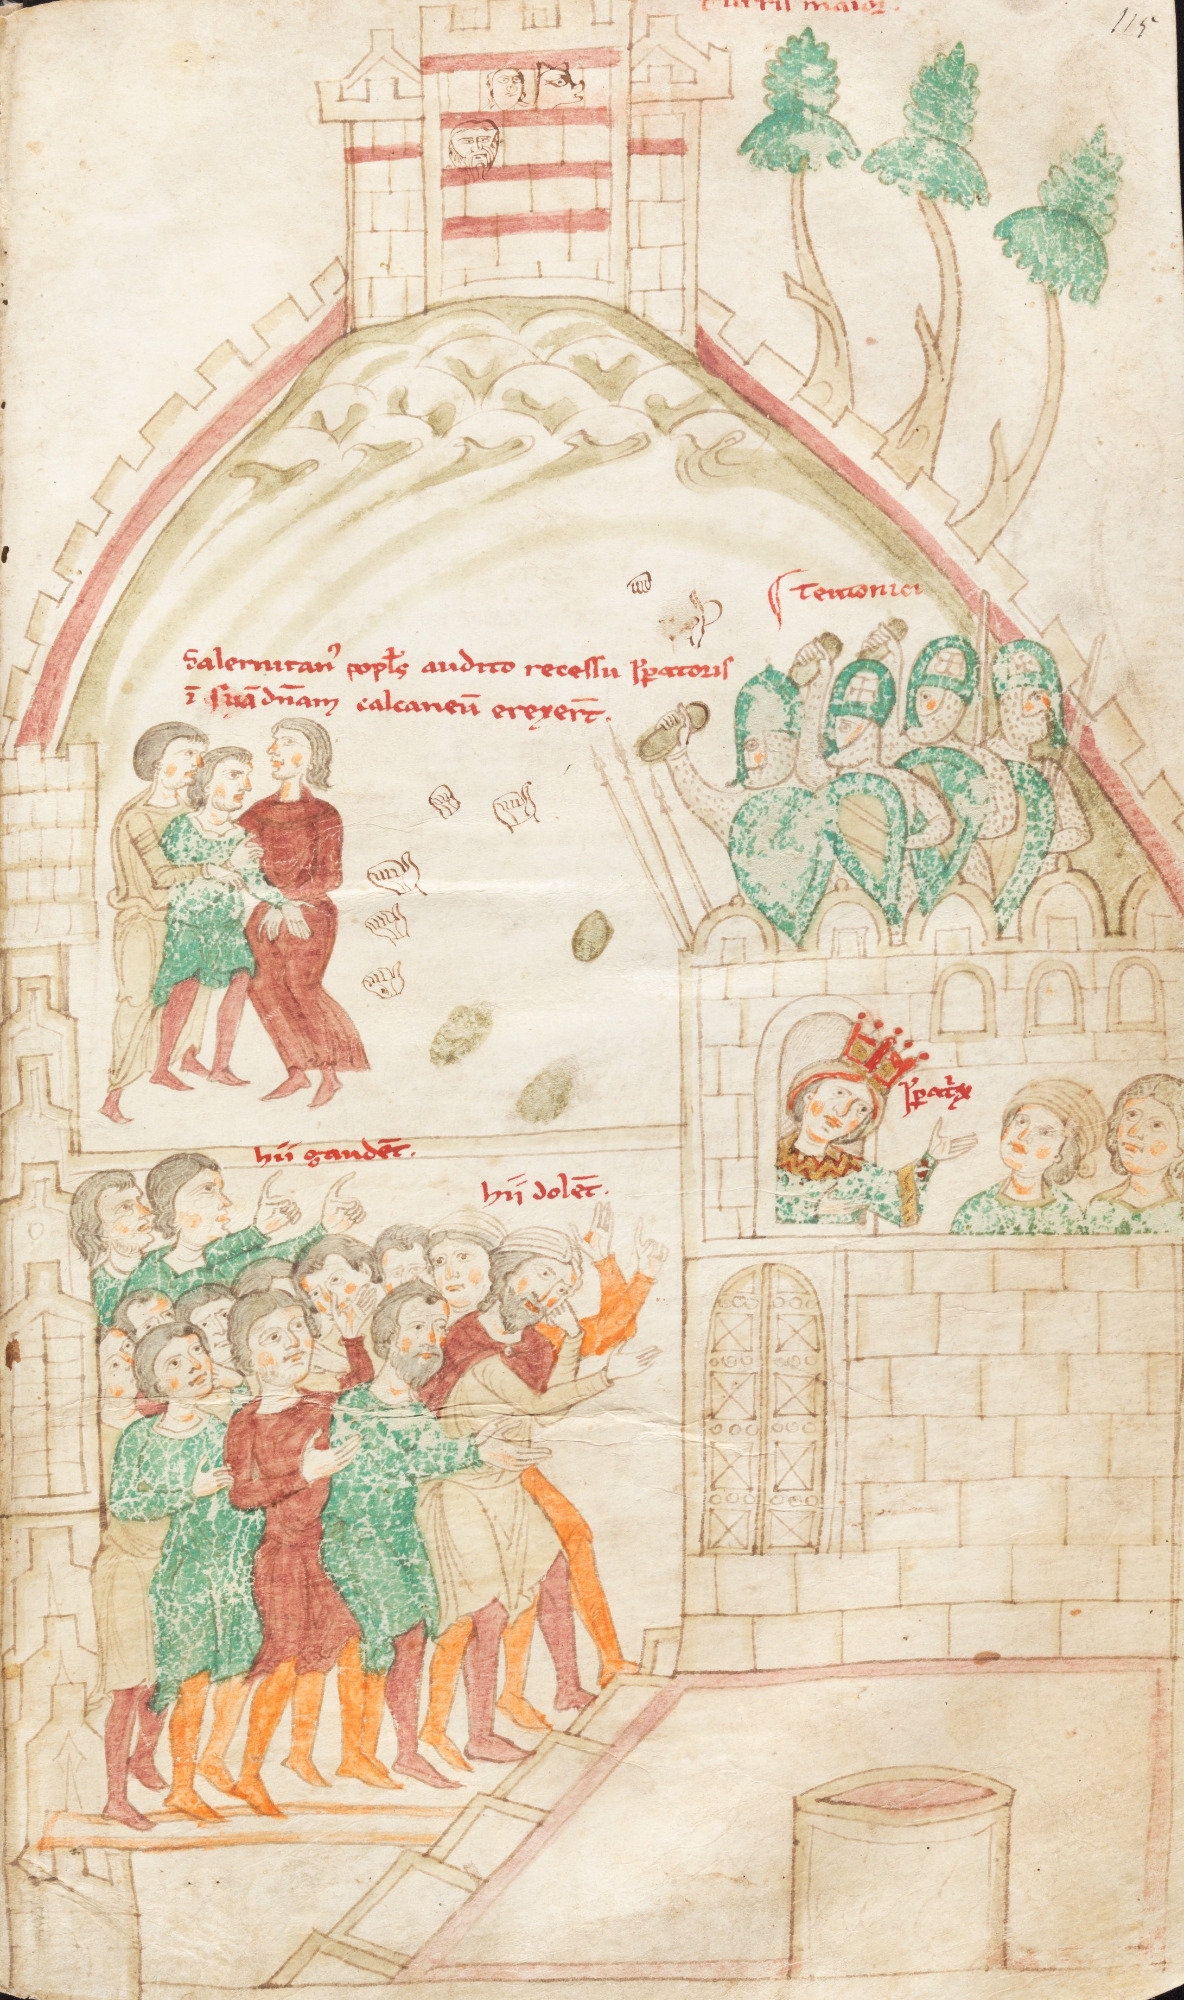 Turris maior.
115
Teutonici
Salernitan' popl's audito recessu Īpatoris
ī suā dn̄am calcaneū erexer̄t.
Īpatⁱx
hii gaudēt.
hii dolēt.